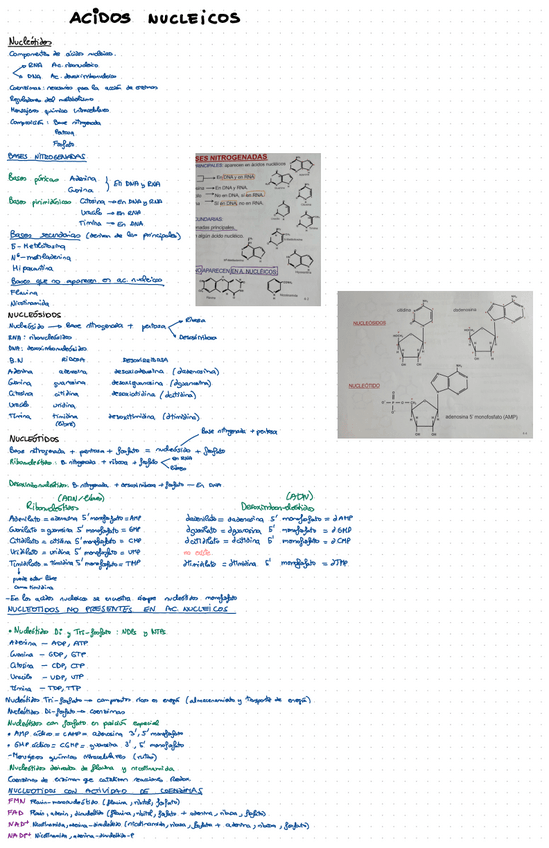 ACIDOS NUCLEICOS
Nucleótidos
Componentes de ácidos nucleicos.
RNA Ac. ribonucleico
DNA Ac. desoxirribonucleico
Coenzimas: necesarios para la acción de enzimas
Reguladores del metabolismo
Mensajeros químicos intracelulares
Composición: Base nitrogenada
Pentosa
Fosfato
BASES NITROGENADAS
Bases púricas Adenina
Guanina } En DNA y RNA
Bases pirimidínicas Citosina → en DNA y RNA
Uracilo → en RNA
Timina → En DNA
Bases secundarias (derivan de las principales)
5-Metilcitosina
N⁶-metiladenina
Hipoxantina
Bases que no aparecen en ac. nucleicos
Flavina
Nicotinamida
SES NITROGENADAS
PRINCIPALES: aparecen en ácidos nucleicos
En DNA y en RNA.
En DNA y RNA.
No en DNA, sí en RNA.
Sí en DNA, no en RNA.
CUNDARIAS:
madas principales,
algún ácido nucleico.
NO APARECEN EN A. NUCLEICOS:
NUCLEÓSIDOS
Nucleósido → Base nitrogenada + pentosa
Ribosa
Desoxirribosa
RNA: ribonucleósido
DNA: desoxirribonucleósido
B.N RIBOSA DESOXIRRIBOSA
Adenina adenosina desoxiadenosina (dadenosina)
Guanina guanosina desoxiguanosina (dguanosina)
Citosina citidina desoxicitidina (dcitidina)
Uracilo uridina
Timina timidina desoxitimidina (dtimidina)
(libre)
NUCLEOSIDOS
citidina
adenosina
NUCLEÓTIDO
adenosina 5' monofosfato (AMP)
NUCLEÓTIDOS
Base nitrogenada + pentosa
Base nitrogenada + pentosa + fosfato = nucleósido + fosfato
Ribonucleótido: B. nitrogenada + ribosa + fosfato
en RNA
libres
Desoxirribonucleótido: B. nitrogenada + desoxirribosa + fosfato — En DNA
(ARN/libres) (ADN)
Ribonucleótidos Desoxirribonucleótidos
Adenilato = adenosina 5' monofosfato = AMP dadenilato = dadenosina 5' monofosfato = dAMP
Guanilato = guanosina 5' monofosfato = GMP dguanilato = dguanosina 5' monofosfato = dGMP
Citidilato = citidina 5' monofosfato = CMP dcitidilato = dcitidina 5' monofosfato = dCMP
Uridilato = uridina 5' monofosfato = UMP no existe
Timidilato = timidina 5' monofosfato = TMP dtimidilato = dtimidina 5' monofosfato = dTMP
puede estar libre
como timidina
- En los ácidos nucleicos se encuentra siempre nucleótidos monofosfato
NUCLEOTIDOS NO PRESENTES EN AC. NUCLEICOS
• Nucleótidos Di y Tri-fosfato: NDPs y NTPs
Adenina — ADP, ATP
Guanina — GDP, GTP
Citosina — CDP, CTP
Uracilo — UDP, UTP
Timina — TDP, TTP
Nucleótidos Tri-fosfato → compuestos ricos en energía (almacenamiento y transporte de energía)
Nucleótidos Di-fosfato → coenzimas
Nucleótidos con fosfato en posición especial
• AMP cíclico = CAMP = adenosina 3', 5' monofosfato
• GMP cíclico = CGMP = guanosina 3', 5' monofosfato
- Mensajeros químicos intracelulares
Nucleótidos derivados de flavina y nicotinamida
Coenzimas de enzimas que catalizan reacciones Redox
NUCLEOTIDOS CON ACTIVIDAD DE COENZIMAS
FMN Flavin-mononucleótido (flavina, ribitol, fosfato)
FAD Flavin, adenin, dinucleótido (flavina, ribitol, fosfato + adenina, ribosa, fosfato)
NAD⁺ Nicotinamida, adenina-dinucleótido (nicotinamida, ribosa, fosfato + adenina, ribosa, fosfato)
NADP⁺ Nicotinamida, adenina-dinucleótido-P